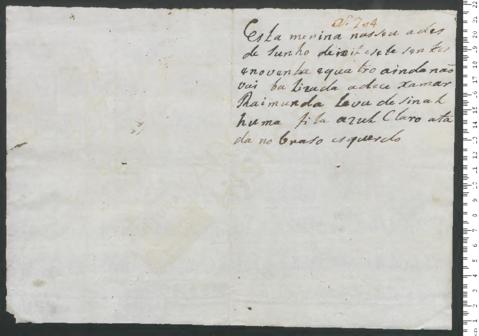 Nº 704
Esta menina nasseu a des
de Junho de mil e sete sentos
e noventa e quatro ainda não
vai batizada a de se xamar
Raimunda leva de sinal
huma fita azul Claro ata
da no braso esquerdo